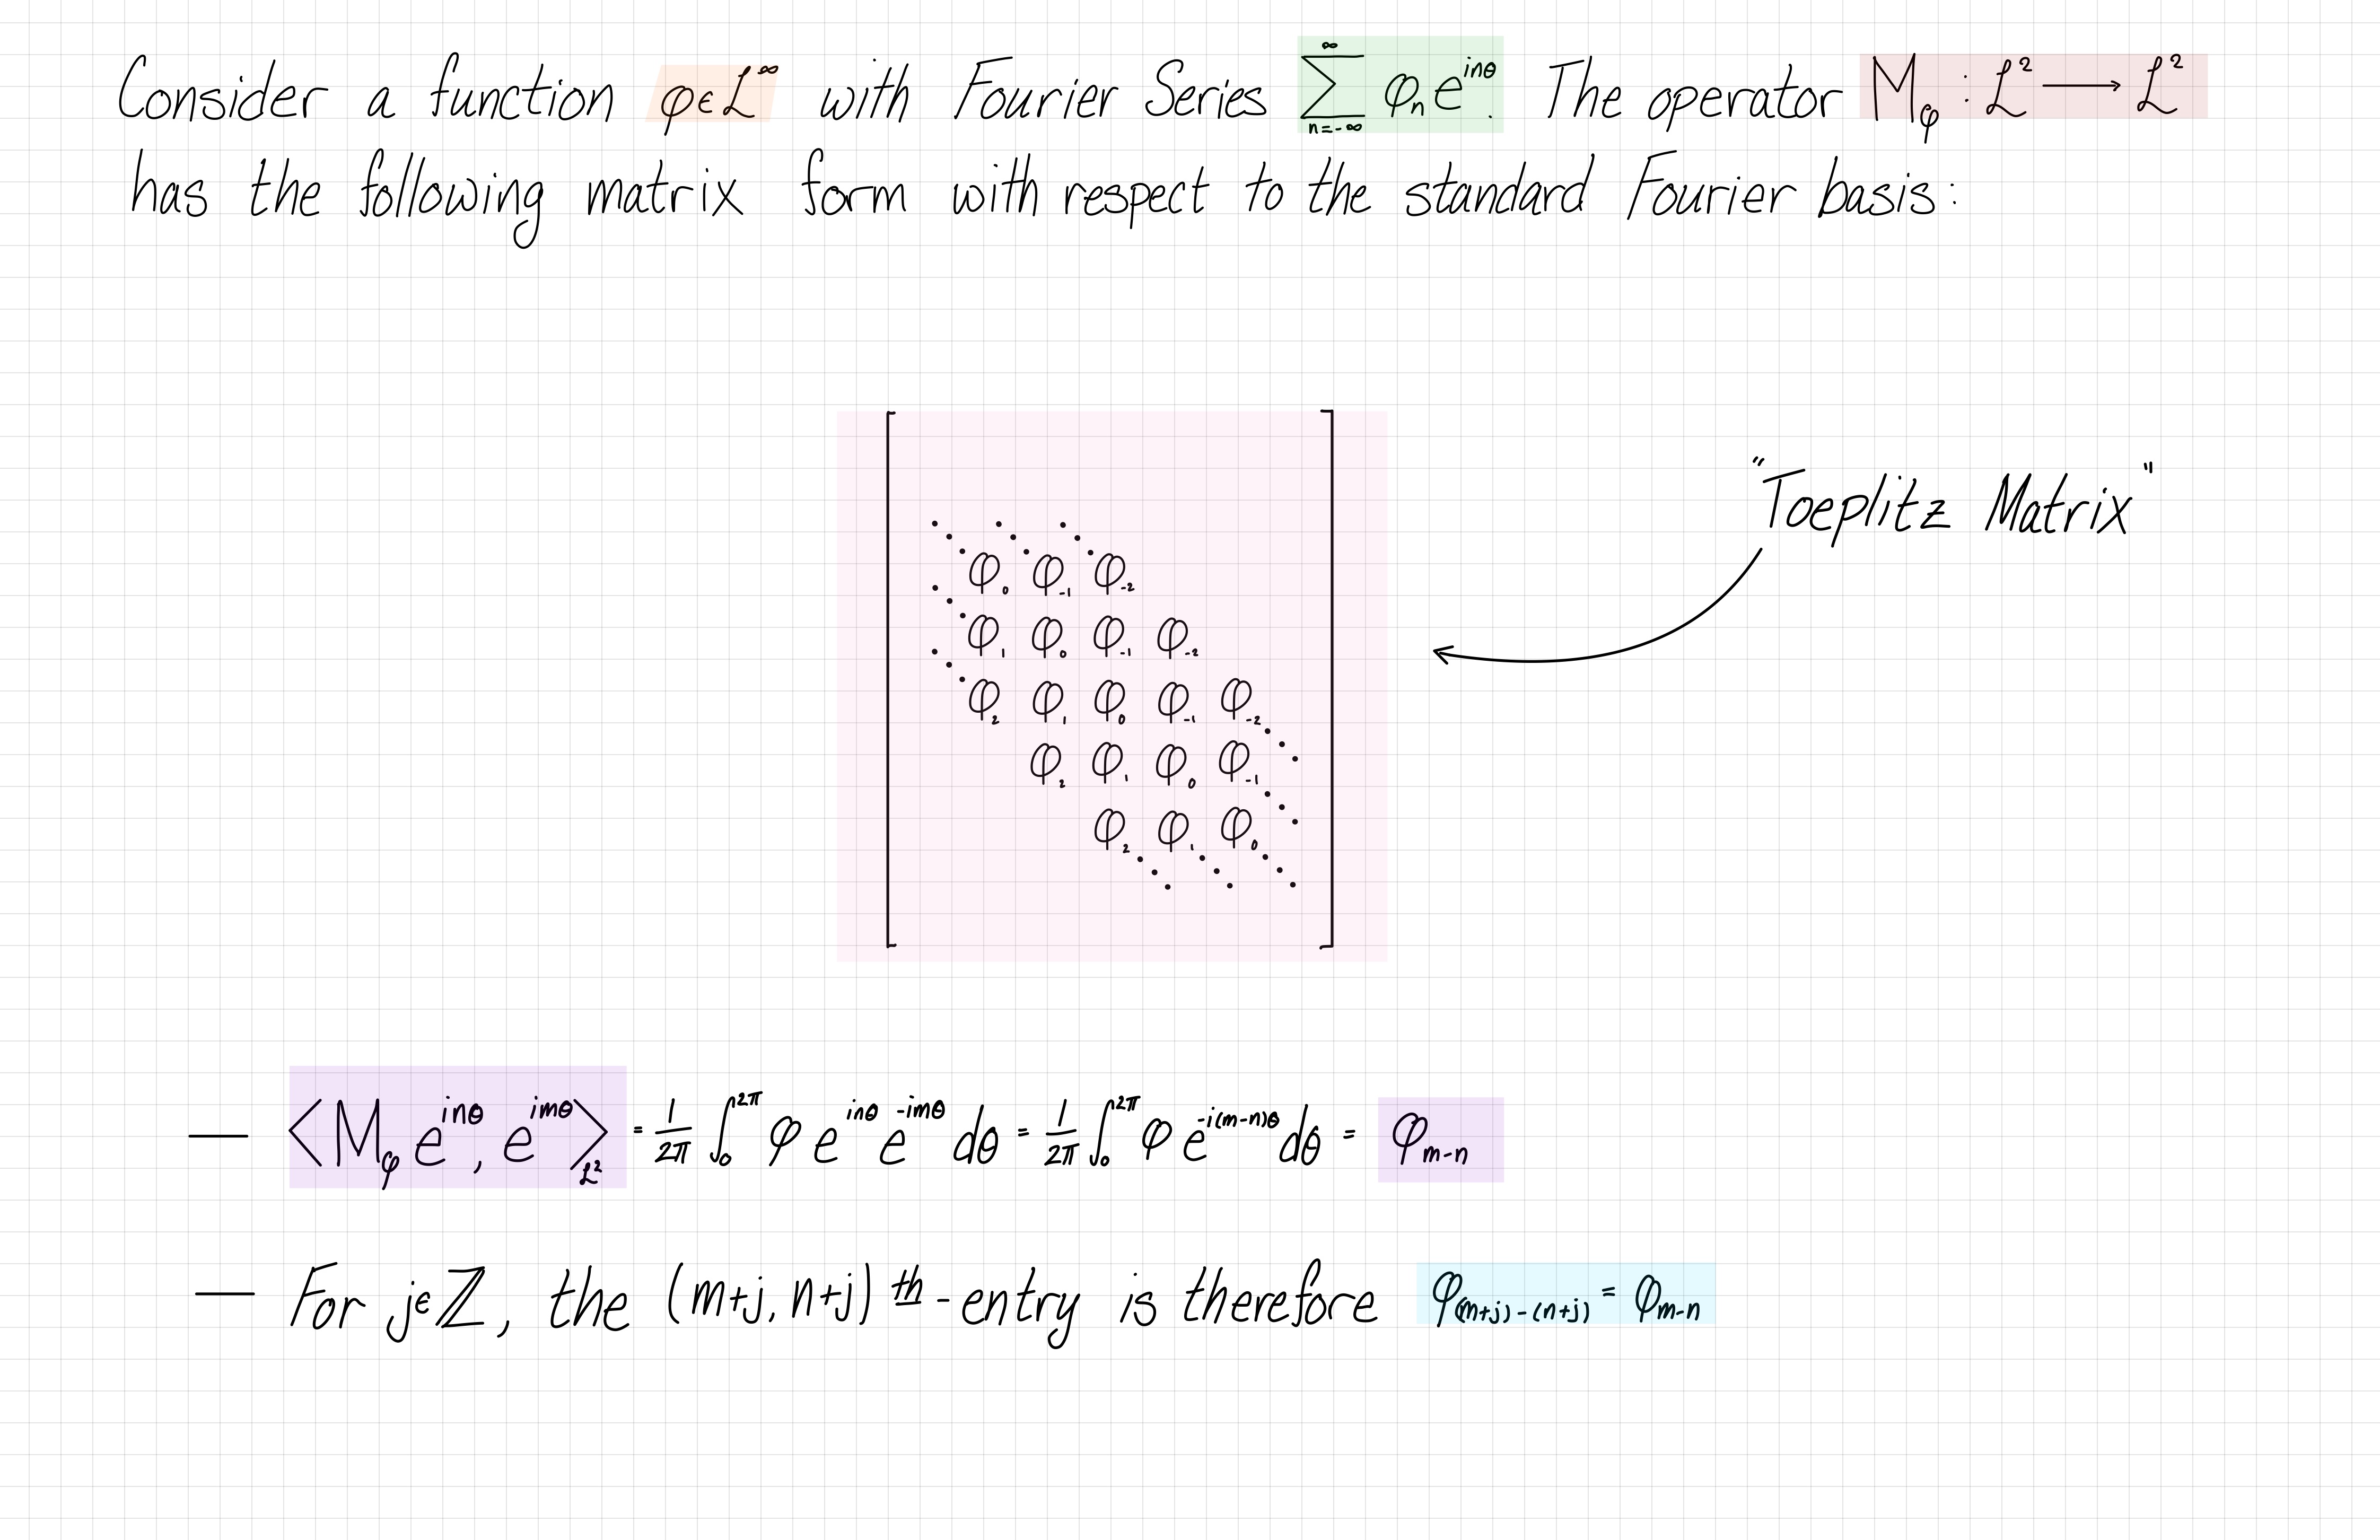 Consider a function φ∈ℒ^∞ with Fourier Series ∑_{n=-∞}^{∞} φ_n e^{inθ}. The operator M_φ : ℒ² ⟶ ℒ²
has the following matrix form with respect to the standard Fourier basis:
"Toeplitz Matrix"
⋱ ⋱ ⋱
φ_0 φ_{-1} φ_{-2}
⋱ φ_1 φ_0 φ_{-1} φ_{-2}
⋱ φ_2 φ_1 φ_0 φ_{-1} φ_{-2} ⋱
φ_2 φ_1 φ_0 φ_{-1} ⋱
φ_2 φ_1 φ_0 ⋱
⋱ ⋱
— ⟨M_φ e^{inθ}, e^{imθ}⟩_{ℒ²} = 1/2π ∫_0^{2π} φ e^{inθ} e^{-imθ} dθ = 1/2π ∫_0^{2π} φ e^{-i(m-n)θ} dθ = φ_{m-n}
— For j∈ℤ, the (m+j, n+j) th - entry is therefore φ_{(m+j)-(n+j)} = φ_{m-n}